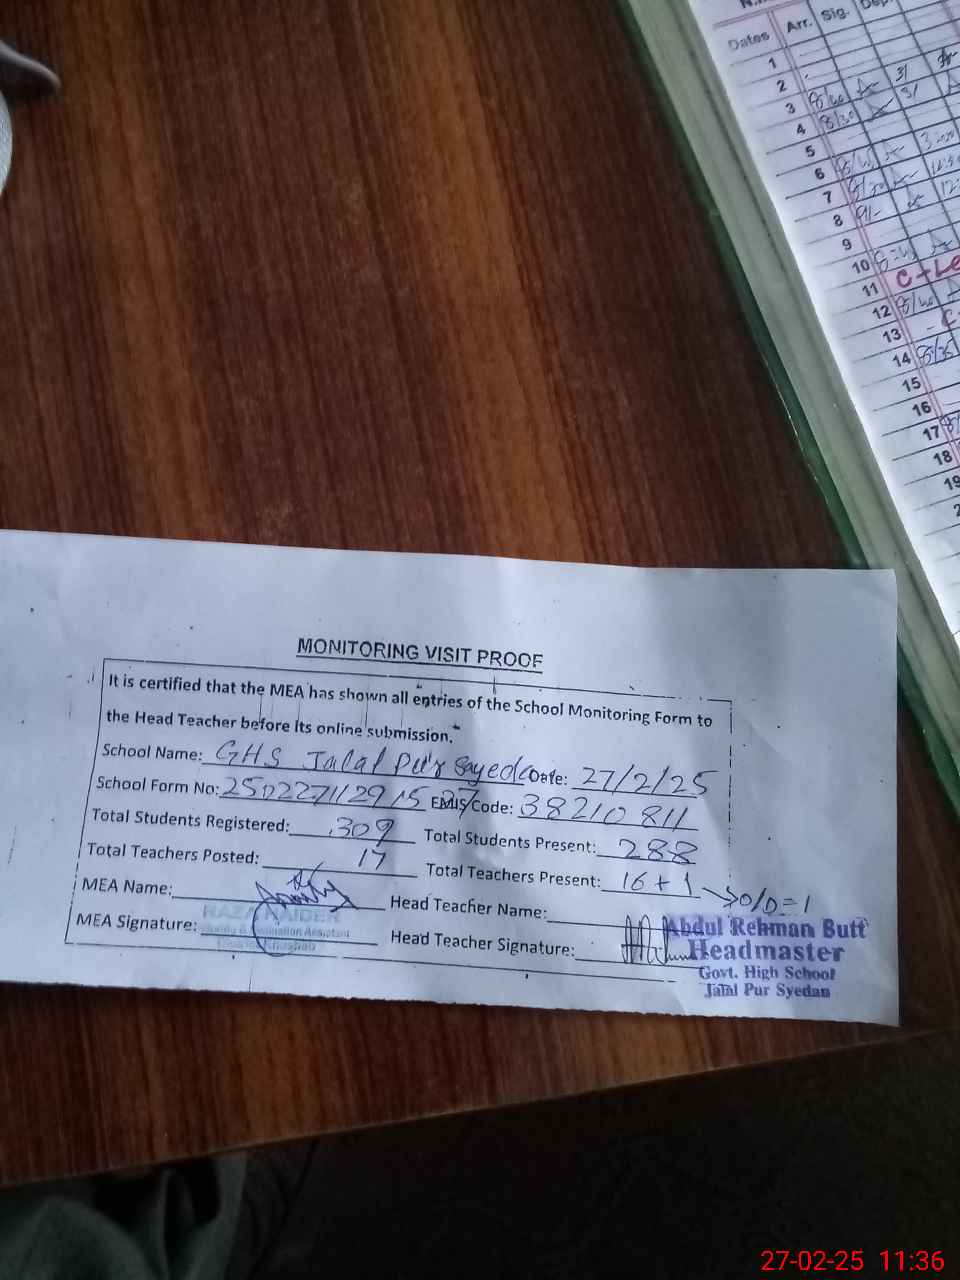 Dates Arr. Sig. Dep.
1
2
3 8/40 31
4 8/30 31
5
6 8/40
7 8/30
8 9/-
9
10
11
12 8/40
13
14 8/35
15
16
17
18
19
MONITORING VISIT PROOF
It is certified that the MEA has shown all entries of the School Monitoring Form to
the Head Teacher before its online submission."
School Name: GHS Jalal Pur Sayedan Date: 27/2/25
School Form No: EMIS Code: 38210811
Total Students Registered: 309 Total Students Present: 288
Total Teachers Posted: 17 Total Teachers Present: 16 + 1 → O/D = 1
MEA Name: Head Teacher Name:
RAZA HAIDER
Abdul Rehman Butt
MEA Signature: Head Teacher Signature:
Headmaster
Govt. High School
Jalal Pur Syedan
Khushab
27-02-25 11:36